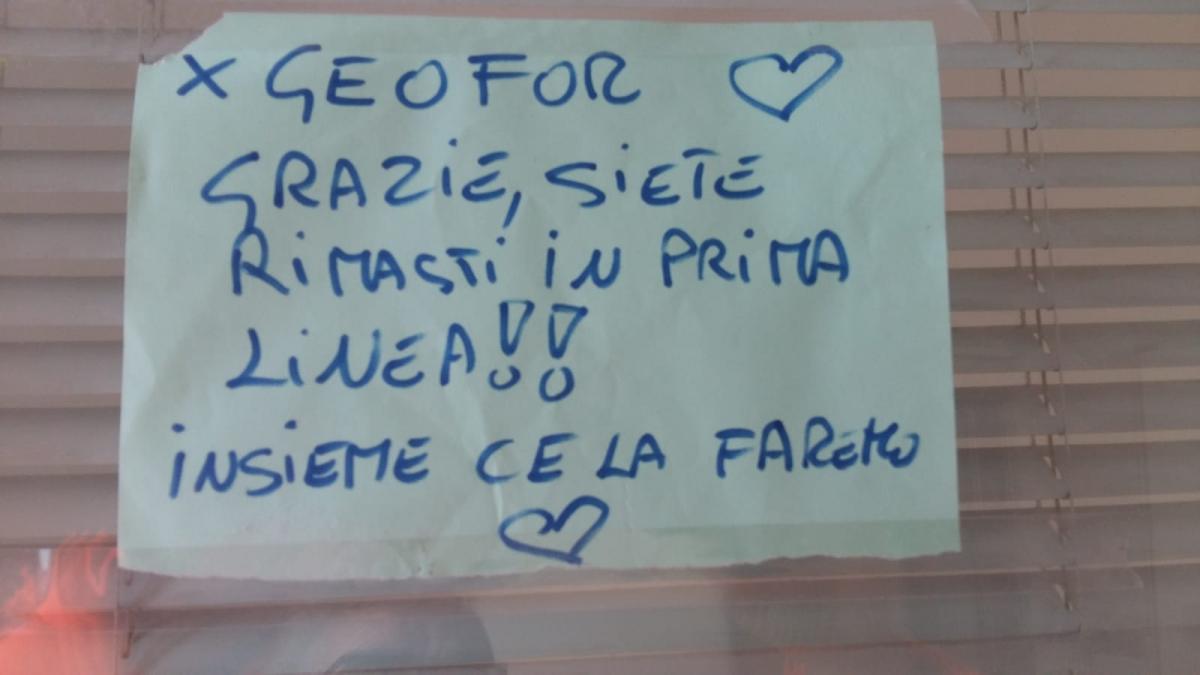 X GEOFOR
GRAZIE, SIETE
RIMASTI IN PRIMA
LINEA!!
INSIEME CE LA FAREMO